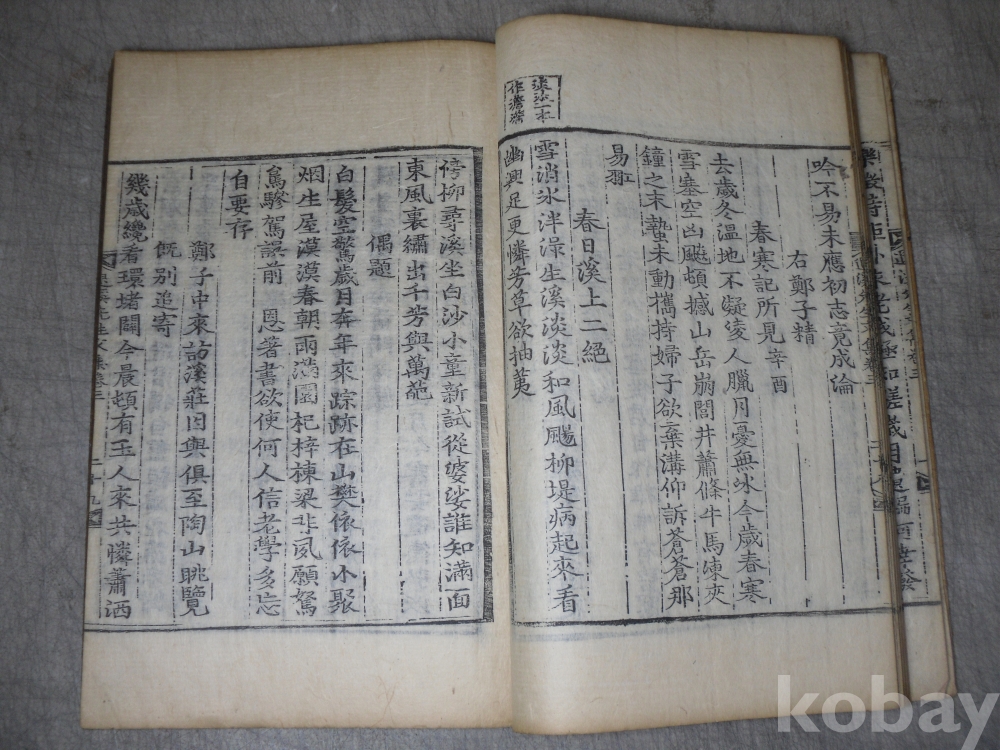 淡淡一本
作澹澹
吟不易未應初志竟成淪
右鄭子精
春寒記所見辛酉
去歲冬溫地不凝凌人臘月憂無氷今歲春寒
雪塞空凶飈頓撼山岳崩閭井蕭條牛馬凍夾
鐘之末蟄未動攜持婦子欲棄溝仰訴蒼蒼那
易
春日溪上二絕
雪消氷泮淥生溪淡淡和風颺柳堤病起來看
幽興足更憐芳草欲抽荑
傍柳尋溪坐白沙小童新試從婆娑誰知滿面
東風裏繡出千芳與萬葩
偶題
白髮空驚歲月奔年來踪跡在山樊依依小聚
烟生屋漠漠春朝雨滿園杞梓棟梁非夙願駑
驂駕誤前 恩著書欲使何人信老學多忘
自要存
鄭子中來訪溪莊因與俱至陶山眺覽
旣別追寄
幾歲纔看環堵闢今晨頓有玉人來共憐蕭洒
kobay